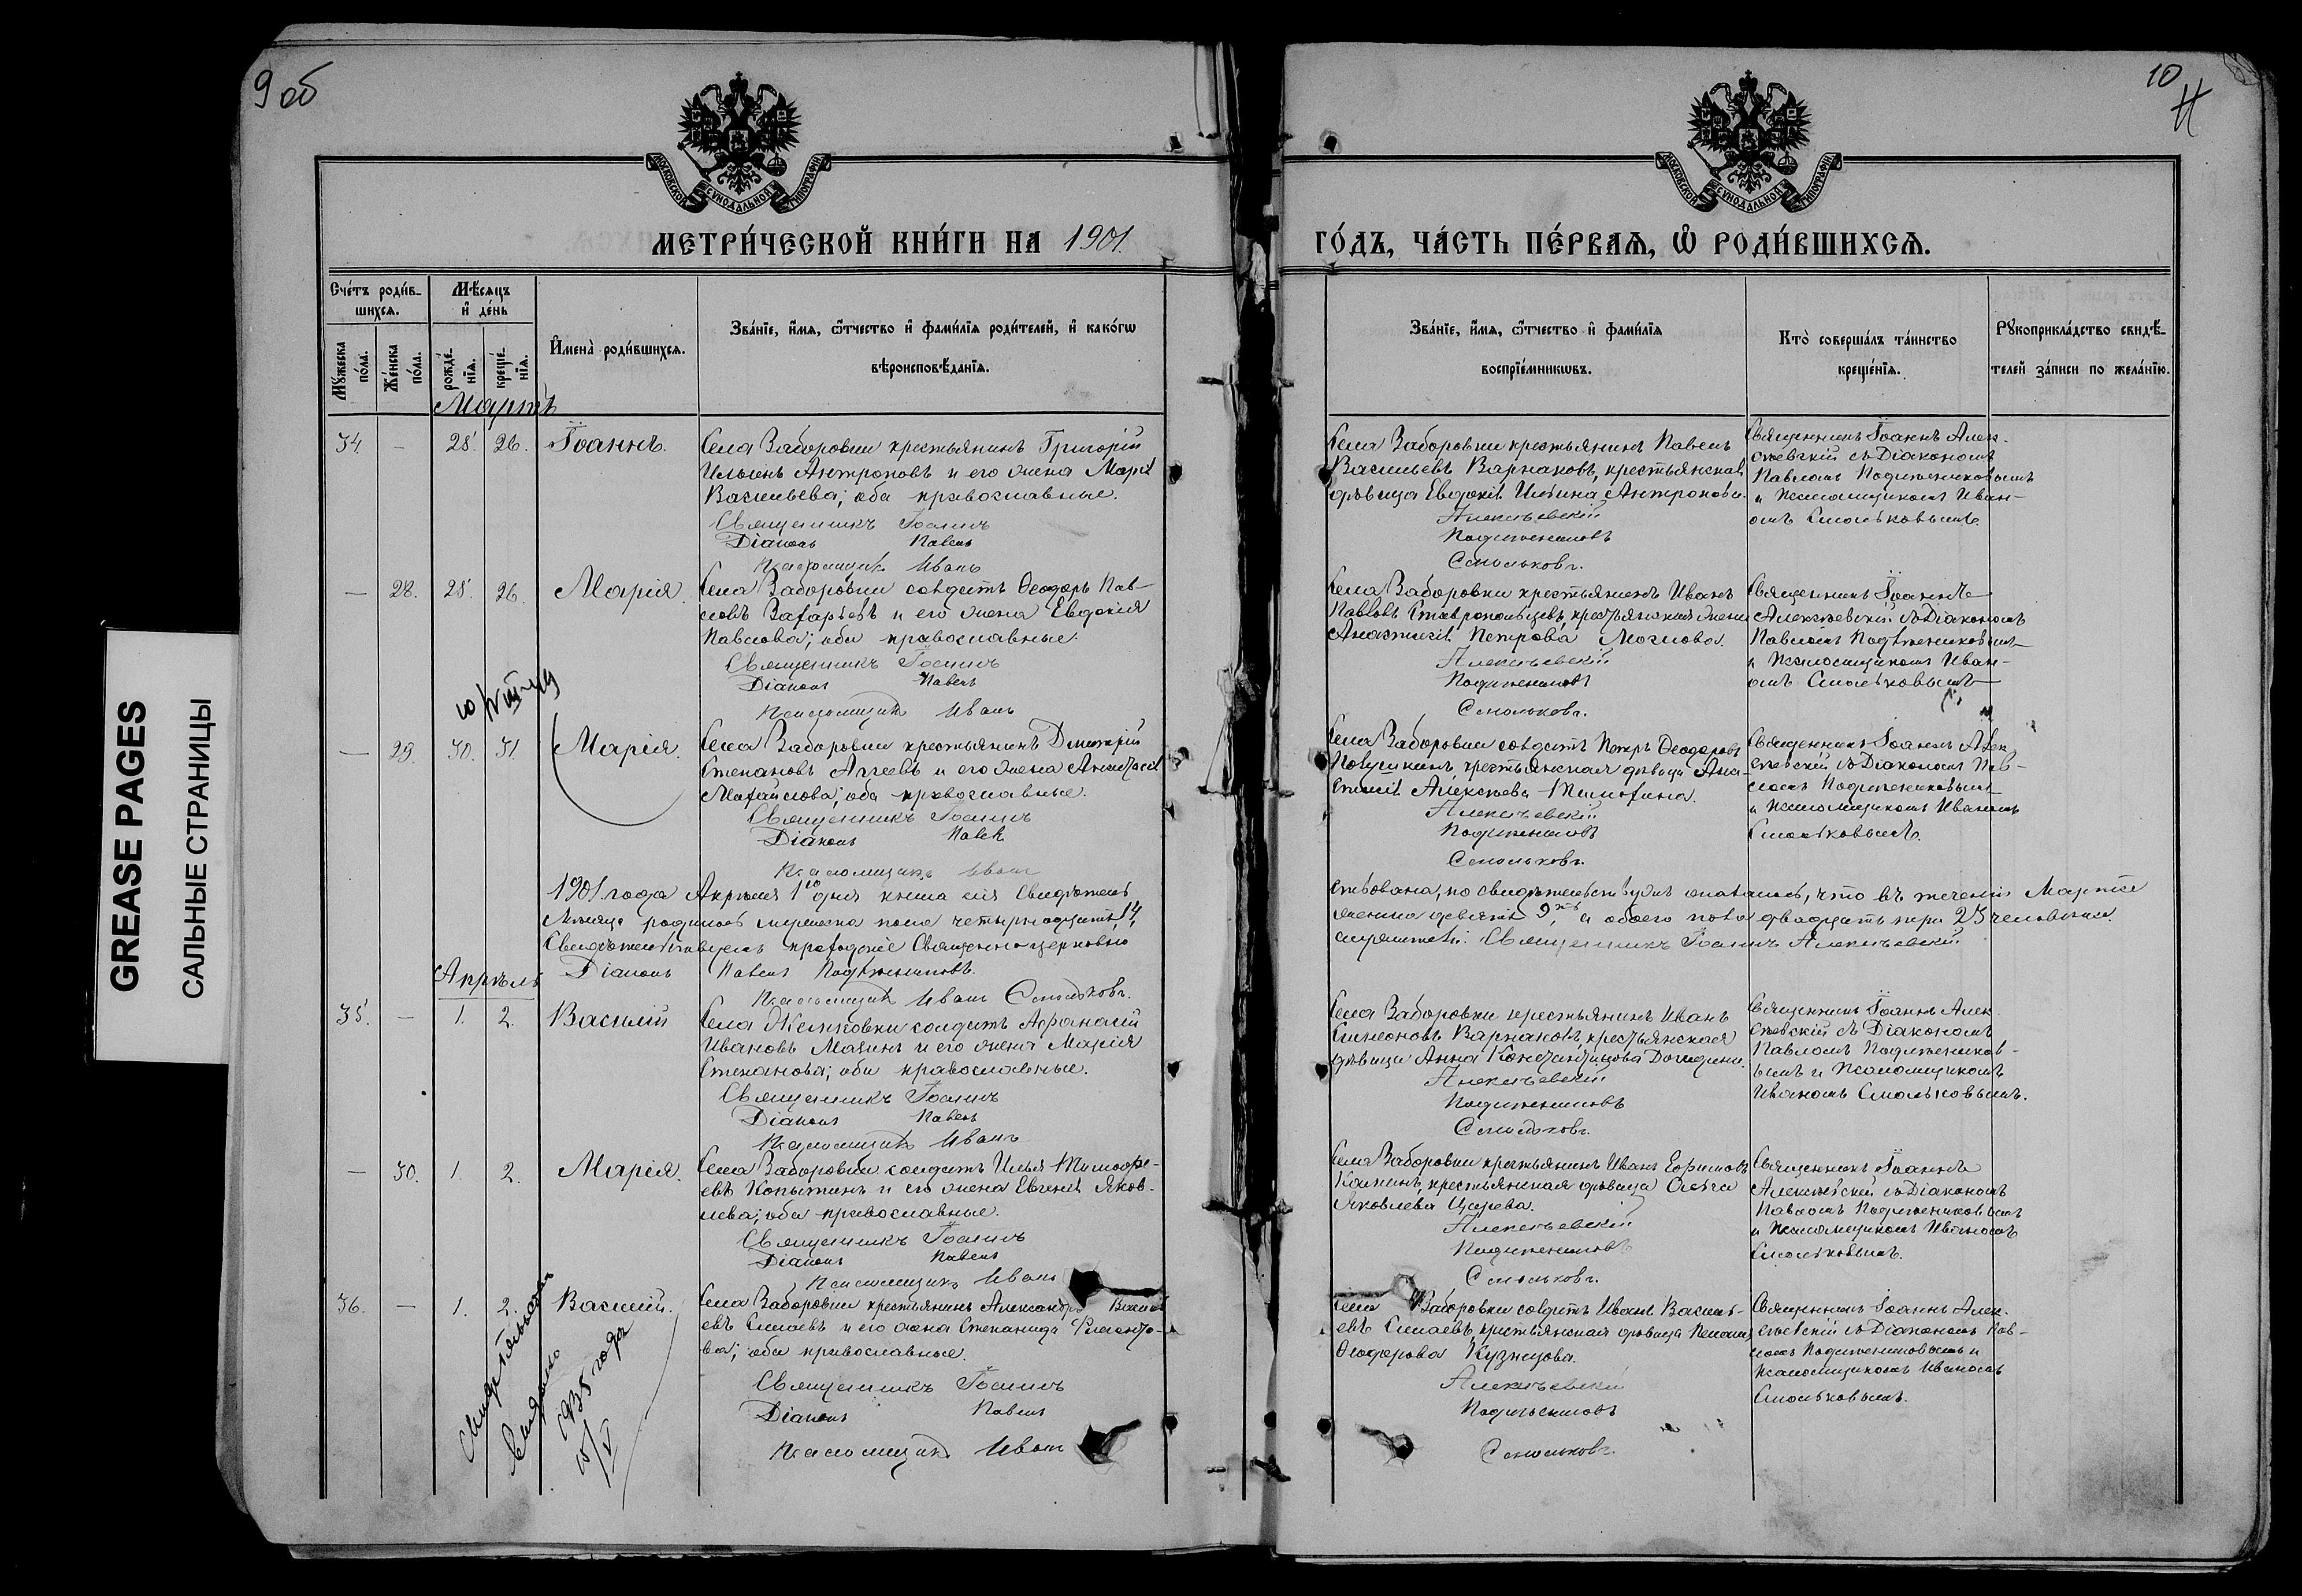 9 об
10
МОСКОВСКОЙ СѴНОДАЛЬНОЙ ТИПОГРАФІИ
МОСКОВСКОЙ СѴНОДАЛЬНОЙ ТИПОГРАФІИ
МЕТРИ́ЧЕСКОЙ КНИ́ГИ НА 1901.
ГО́ДЪ, ЧА́СТЬ ПЕ́РВАѦ, Ѽ РОДИ́ВШИХСѦ.
Сче́тъ роди́в-
шихсѧ.
Мꙋ́жеска по́ла.
Же́нска по́ла.
Мѣ́сѧцъ
и҆ де́нь
рожде́-
нїѧ.
креще́-
нїѧ.
И҆мена̀ роди́вшихсѧ.
Зва́нїе, и҆́мѧ, ѻ҆́тчество и҆ фами́лїѧ роди́телей, и҆ како́гѡ
вѣроисповѣ́данїѧ.
Зва́нїе, и҆́мѧ, ѻ҆́тчество и҆ фами́лїѧ
воспрїе́мникѡвъ.
Кто̀ соверша́лъ та́инство
креще́нїѧ.
Рꙋкоприкла́дство свидѣ́-
телей за́писи по жела́нїю.
Мартъ
34. — 25. 26. Іоаннъ.
Села Заборовки крестьянинъ Григорій
Ильинъ Антроповъ и его жена Марія
Васильева; оба православные.
Священникъ Іоаннъ
Діаконъ Павелъ
Псаломщикъ Иванъ
Села Заборовки крестьянинъ Павелъ
Васильевъ Варнаковъ, крестьянская
дѣвица Евдокія Ильина Антропова.
Алексѣевскій
Смольковъ.
Священникъ Іоаннъ Алек-
сѣевскій съ Діакономъ
Павломъ
и Псаломщикомъ Иван-
омъ Смольковымъ.
— 28. 25. 26. Марія.
Села Заборовки солдатъ Ѳеодоръ Пав-
ловъ Захарьевъ и его жена Евдокія
Павлова; оба православные.
Священникъ Іоаннъ
Діаконъ Павелъ
Псаломщикъ Иванъ
Села Заборовки крестьянинъ Иванъ
Павловъ Ставропольцевъ, крестьянская жена
Анастасія Петрова
Алексѣевскій
Смольковъ.
Священникъ Іоаннъ
Алексѣевскій съ Діакономъ
Павломъ
и Псаломщикомъ Иван-
омъ Смольковымъ
— 29. 30. 31. Марія.
Села Заборовки крестьянинъ Дмитрій
Степановъ Агеевъ и его жена Анастасія
Михайлова; оба православные.
Священникъ Іоаннъ
Діаконъ Павелъ
Псаломщикъ Иванъ
Села Заборовки солдатъ Петръ Ѳеодоровъ
крестьянская дѣвица Ана-
стасія Алексѣева
Алексѣевскій
Смольковъ.
Священникъ Іоаннъ Алек-
сѣевскій съ Діакономъ Пав-
ломъ
и Псаломщикомъ Иваномъ
Смольковымъ.
1901 года Апрѣля 1го дня книга сія свидѣтель-
ствована, по свидѣтельствѣ оказалось, что въ теченіи Марта
мѣсяца родилось мужеска пола четырнадцать 14,
женска девять 9, а обоего пола двадцать три 23 человѣка.
Священникъ Іоаннъ Алексѣевскій
Діаконъ Павелъ
Псаломщикъ Иванъ Смольковъ.
Апрѣль
35. — 1. 2. Василій
Села солдатъ Аѳанасій
Ивановъ Мазинъ и его жена Марія
Степанова; оба православные.
Священникъ Іоаннъ
Діаконъ Павелъ
Псаломщикъ Иванъ
Села Заборовки крестьянинъ Иванъ
Симеоновъ Варнаковъ, крестьянская
дѣвица Анна Константинова
Алексѣевскій
Смольковъ.
Священникъ Іоаннъ Алек-
сѣевскій съ Діакономъ
Павломъ
и Псаломщикомъ
Иваномъ Смольковымъ.
— 30. 1. 2. Марія.
Села Заборовки солдатъ Илья Тимоѳе-
евъ Копытинъ и его жена Евгенія Яков-
лева; оба православные.
Священникъ Іоаннъ
Діаконъ Павелъ
Псаломщикъ Иванъ
Села Заборовки крестьянинъ Иванъ Ефимовъ
крестьянская дѣвица
Яковлева Царева.
Алексѣевскій
Смольковъ.
Священникъ Іоаннъ
Алексѣевскій съ Діакономъ
Павломъ
и Псаломщикомъ Иваномъ
Смольковымъ.
36. — 1. 2. Василій.
Села Заборовки крестьянинъ Александръ Василь-
евъ Силаевъ и его жена Степанида
оба православные.
Священникъ Іоаннъ
Діаконъ Павелъ
Псаломщикъ Иванъ
Села Заборовки солдатъ Иванъ Василь-
евъ Силаевъ, крестьянская дѣвица Пелагія
Ѳеодорова Кузнецова.
Алексѣевскій
Смольковъ.
Священникъ Іоаннъ Алек-
сѣевскій съ Діакономъ Пав-
ломъ
Псаломщикомъ Иваномъ
Смольковымъ.
1935 года
GREASE PAGES
САЛЬНЫЕ СТРАНИЦЫ